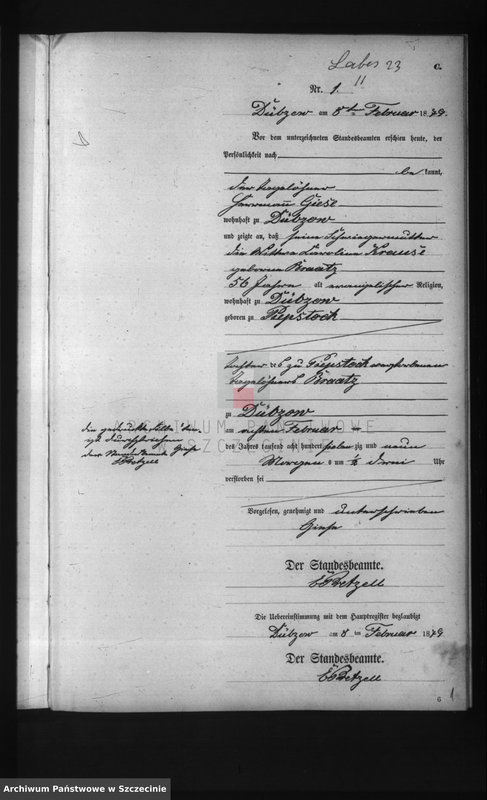 Labes 23
C.
Nr. 1.
11
Dübzow am 8ten Februar 1879.
Vor dem unterzeichneten Standesbeamten erschien heute, der
Persönlichkeit nach
be kannt,
der Tagelöhner
Herrmann Giese
wohnhaft zu Dübzow
und zeigte an, daß seine Schwiegermutter
die Wittwe Caroline Krause
geborne Braatz
56 Jahren alt, evangelischer Religion,
wohnhaft zu Dübzow
geboren zu Piepstock
Tochter des zu Piepstock verstorbenen
Tagelöhners Braatz
zu Dübzow
am Februar
des Jahres tausend acht hundert zig und neun
Morgens um ½ drei Uhr
verstorben sei
Vorgelesen, genehmigt und unterschrieben
Giese
die gedruckte
durchstrichen
der Standesbeamte
Der Standesbeamte.
Die Uebereinstimmung mit dem Hauptregister beglaubigt
Dübzow am 8 ten Februar 1879
Der Standesbeamte.
6
1
ARCHIWUM PAŃSTWOWE
W SZCZECINIE
Archiwum Państwowe w Szczecinie